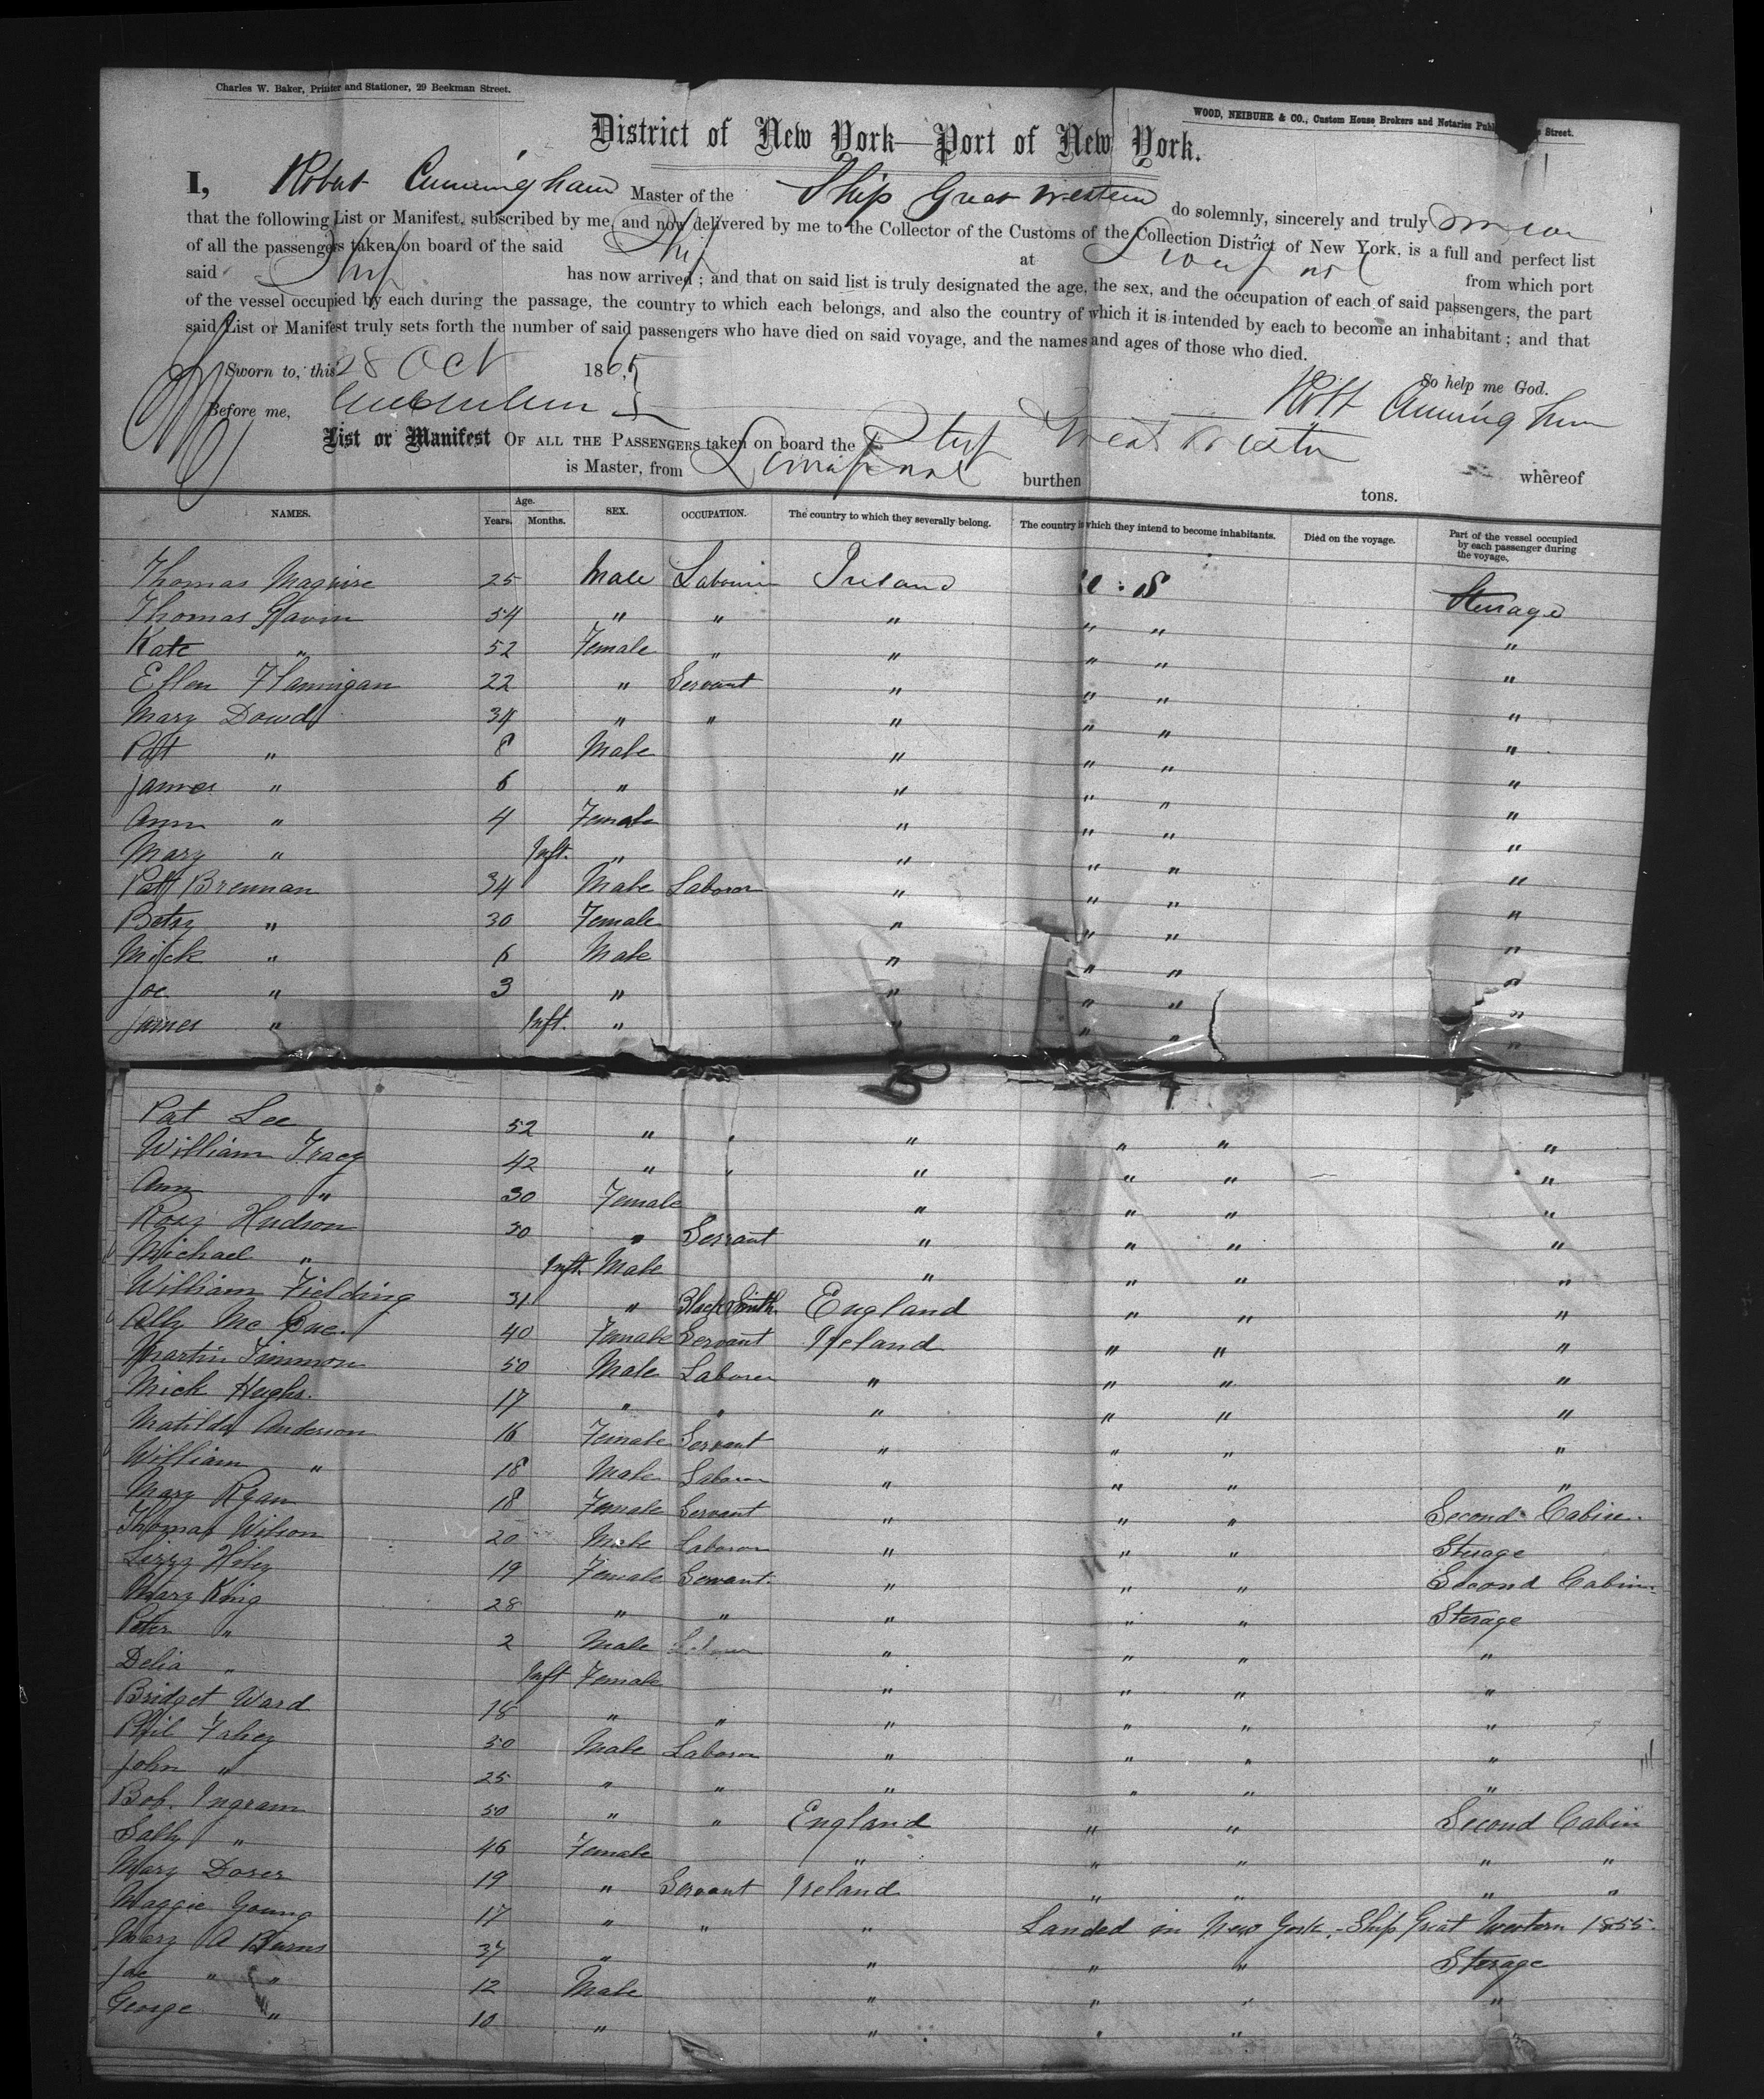 Charles W. Baker, Printer and Stationer, 29 Beekman Street.
WOOD, NEIBUHR & CO., Custom House Brokers and Notaries Street.
District of New York—Port of New York.
I, Robert Cunningham Master of the Ship Great Western do solemnly, sincerely and truly swear
that the following List or Manifest, subscribed by me, and now delivered by me to the Collector of the Customs of the Collection District of New York, is a full and perfect list
of all the passengers taken on board of the said Ship at Liverpool from which port
said Ship has now arrived; and that on said list is truly designated the age, the sex, and the occupation of each of said passengers, the part
of the vessel occupied by each during the passage, the country to which each belongs, and also the country of which it is intended by each to become an inhabitant; and that
said List or Manifest truly sets forth the number of said passengers who have died on said voyage, and the names and ages of those who died.
Sworn to, this 28 Oct 1865 So help me God.
Before me, Robt Cunningham
List or Manifest OF ALL THE PASSENGERS taken on board the Ship Great Western whereof
is Master, from Liverpool burthen tons.
NAMES. Age. Years. Months. SEX. OCCUPATION. The country to which they severally belong. The country in which they intend to become inhabitants. Died on the voyage. Part of the vessel occupied by each passenger during the voyage.
Thomas Maguire 25 Male Labourer Ireland U.S Steerage
Thomas Gavin 54 " " " " " "
Kate " 52 Female " " " " "
Ellen Flannigan 22 " Servant " " " "
Mary Dowd 34 " " " " " "
Patt " 8 Male " " " "
James " 6 " " " " "
Ann " 4 Female " " " "
Mary " Inft. " " " " "
Patt Brennan 34 Male Laborer " " " "
Betsy " 30 Female " " " "
Mick " 6 Male " " " "
Joe " 3 " " " " "
James " Inft. " " " " "
Pat Lee 52 " " " " " "
William Tracy 42 " " " " " "
Ann " 30 Female " " " "
Rosy Hudson 30 " Servant " " " "
Michael " Inft. Male " " " "
William Fielding 31 " Black Smith England " " "
Ally Mc Cue 40 Female Servant Ireland " " "
Martin Timmon 50 Male Laborer " " " "
Mick Heghs. 17 " " " " " "
Matilda Anderson 16 Female Servant " " " "
William " 18 Male Laborer " " " "
Mary Ryan 18 Female Servant " " " Second Cabin
Thomas Wilson 20 Male Laborer " " " Sterage
Lizzy Hiley 19 Female Servant " " " Second Cabin
Mary King 28 " " " " " Sterage
Peter " 2 Male " " " "
Delia " Inft Female " " " "
Bridget Ward 18 " " " " " "
Phil Fahey 50 Male Laborer " " " "
John " 25 " " " " " "
Bob. Ingram 50 " " England " " Second Cabin
Sally " 46 Female " " " " "
Mary Dorer 19 " Servant Ireland " " " "
Maggie Young 17 " " " Landed in New York, Ship Great Western 1855.
Mary A Burns 37 " " " " Sterage
Joe " " 12 Male " " " "
George " 10 " " " "